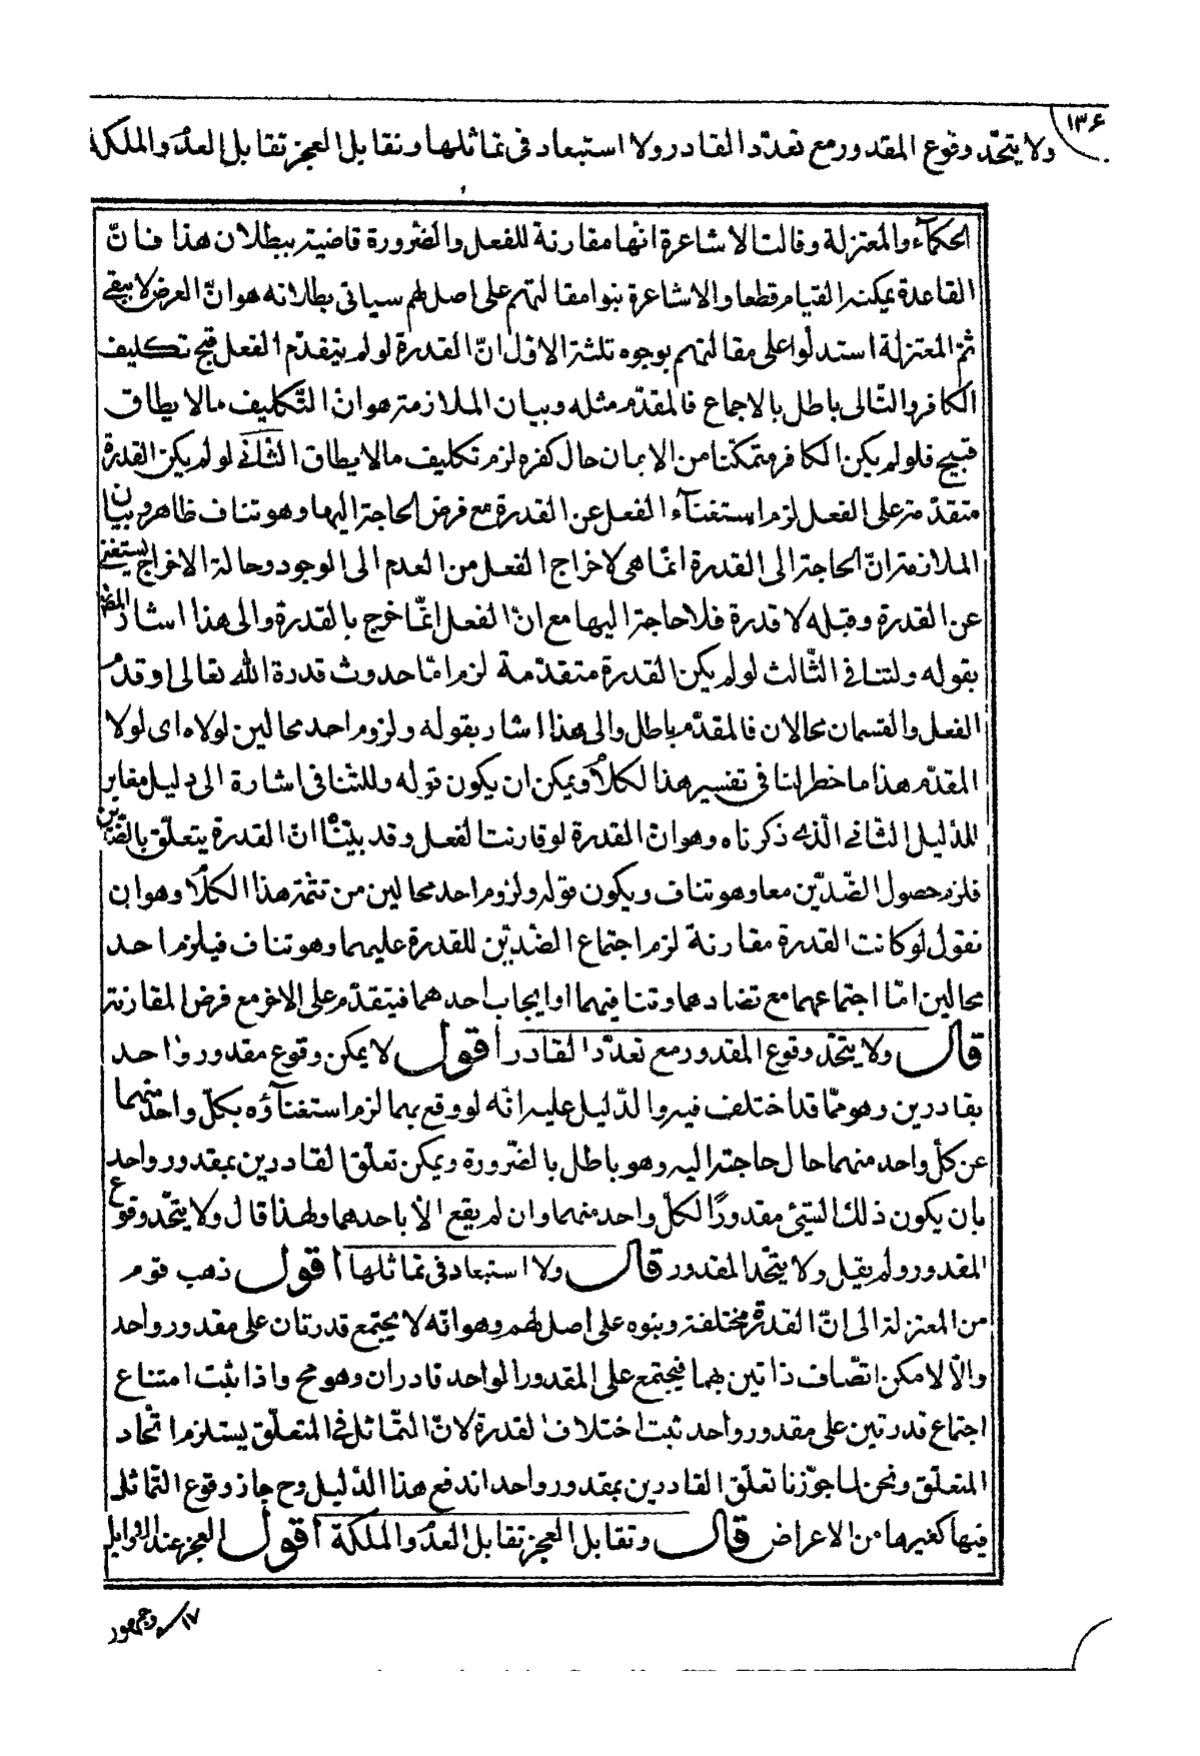 ١٣۶
ولا يتّحد وقوع المقدور مع تعدّد القادر ولا استبعاد فى تماثلها وتقابل العجز تقابل العدم والملكة
الحكمآء والمعتزلة وقالت الاشاعرة انها مقارنة للفعل والضّرورة قاضية ببطلان هذا فانّ
القاعدة يمكنه القيام قطعا والاشاعرة بنوا مقالتهم على اصل لهم سياتى بطلانه هو انّ العرض لا يبقى
ثمّ المعتزلة استدلّوا على مقالتهم بوجوه ثلثة الاوّل انّ القدرة لو لم يتقدّم الفعل قبح تكليف
الكافر والتّالى باطل بالاجماع فالمقدّم مثله وبيان الملازمة هو انّ التّكليف مالا يطاق
قبيح فلو لم يكن الكافر متمكّنا من الايمان حال كفره لزم تكليف مالا يطاق الثّانى لو لم يكن القدرة
متقدّمة على الفعل لزم استغنآء الفعل عن القدرة مع فرض الحاجة اليها وهو تناف ظاهر وبيان
الملازمة انّ الحاجة الى القدرة انّما هى لاخراج الفعل من العدم الى الوجود وحالة الاخراج يستغنى
عن القدرة وقبله لا قدرة فلا حاجة اليها مع انّ الفعل انّما خرج بالقدرة والى هذا اشار المص
بقوله وللتنافى الثّالث لو لم يكن القدرة متقدّمة لزم امّا حدوث قدرة الله تعالى او قدم
الفعل والقسمان محالان فالمقدّم باطل والى هذا اشار بقوله ولزوم احد محالين لولاه اى لولا
المقدّم هذا ما خطر لنا فى تفسير هذا الكلام ويمكن ان يكون قوله وللتنافى اشارة الى دليل مغاير
للدّليل الثّانى الّذى ذكرناه وهو انّ القدرة لو قارنت الفعل وقد بيّنّا انّ القدرة يتعلّق بالضّدّين
فلزم حصول الضّدّين معا وهو تناف ويكون قوله ولزوم احد محالين من تتمّة هذا الكلام وهو ان
نقول لو كانت القدرة مقارنة لزم اجتماع الضّدّين للقدرة عليهما وهو تناف فيلزم احد
محالين امّا اجتماعهما مع تضادهما وتنافيهما او ايجاب احدهما فيتقدّم على الاخر مع فرض المقارنة
قال ولا يتّحد وقوع المقدور مع تعدّد القادر اقول لا يمكن وقوع مقدور واحد
بقادرين وهو ممّا قد اختلف فيه والدّليل عليه انّه لو وقع بهما لزم استغنآؤه بكلّ واحد منهما
عن كلّ واحد منهما حال حاجته اليه وهو باطل بالضّرورة ويمكن تعلّق القادرين بمقدور واحد
بان يكون ذلك الشئ مقدورًا لكلّ واحد منهما وان لم يقع الّا باحدهما ولهذا قال ولا يتّحد وقوع
المقدور ولم يقل ولا يتّحد المقدور قال ولا استبعاد فى تماثلها اقول ذهب قوم
من المعتزلة الى انّ القدرة مختلفة وبنوه على اصل لهم وهو انّه لا يجتمع قدرتان على مقدور واحد
والّا لامكن اتّصاف ذاتين بهما فيجتمع على المقدور الواحد قادران وهو مح واذا ثبت امتناع
اجتماع قدرتين على مقدور واحد ثبت اختلاف القدرة لانّ التّماثل فى المتعلّق يستلزم اتّحاد
المتعلّق ونحن لما جوّزنا تعلّق القادرين بمقدور واحد اندفع هذا الدّليل وح جاز وقوع التّماثل
فيها كغيرها من الاعراض قال وتقابل العجز تقابل العدم والملكة اقول العجز عند الاوايل